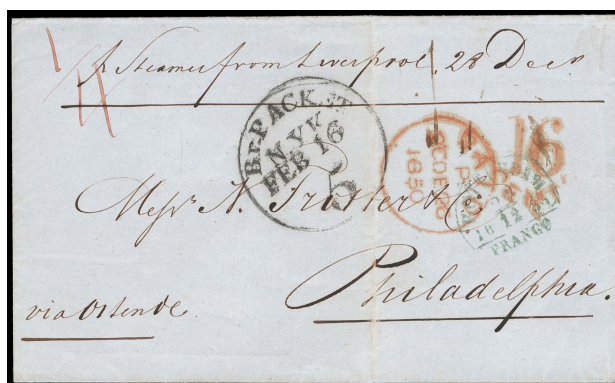 pr Steamer from Liverpool, 28 Decr
Br. PACKET
N. YK
FEB 16
5
PAID
1850
16
18 12
FRANCO
Messrs N. Trotter & Co.
Philadelphia.
via Ostende